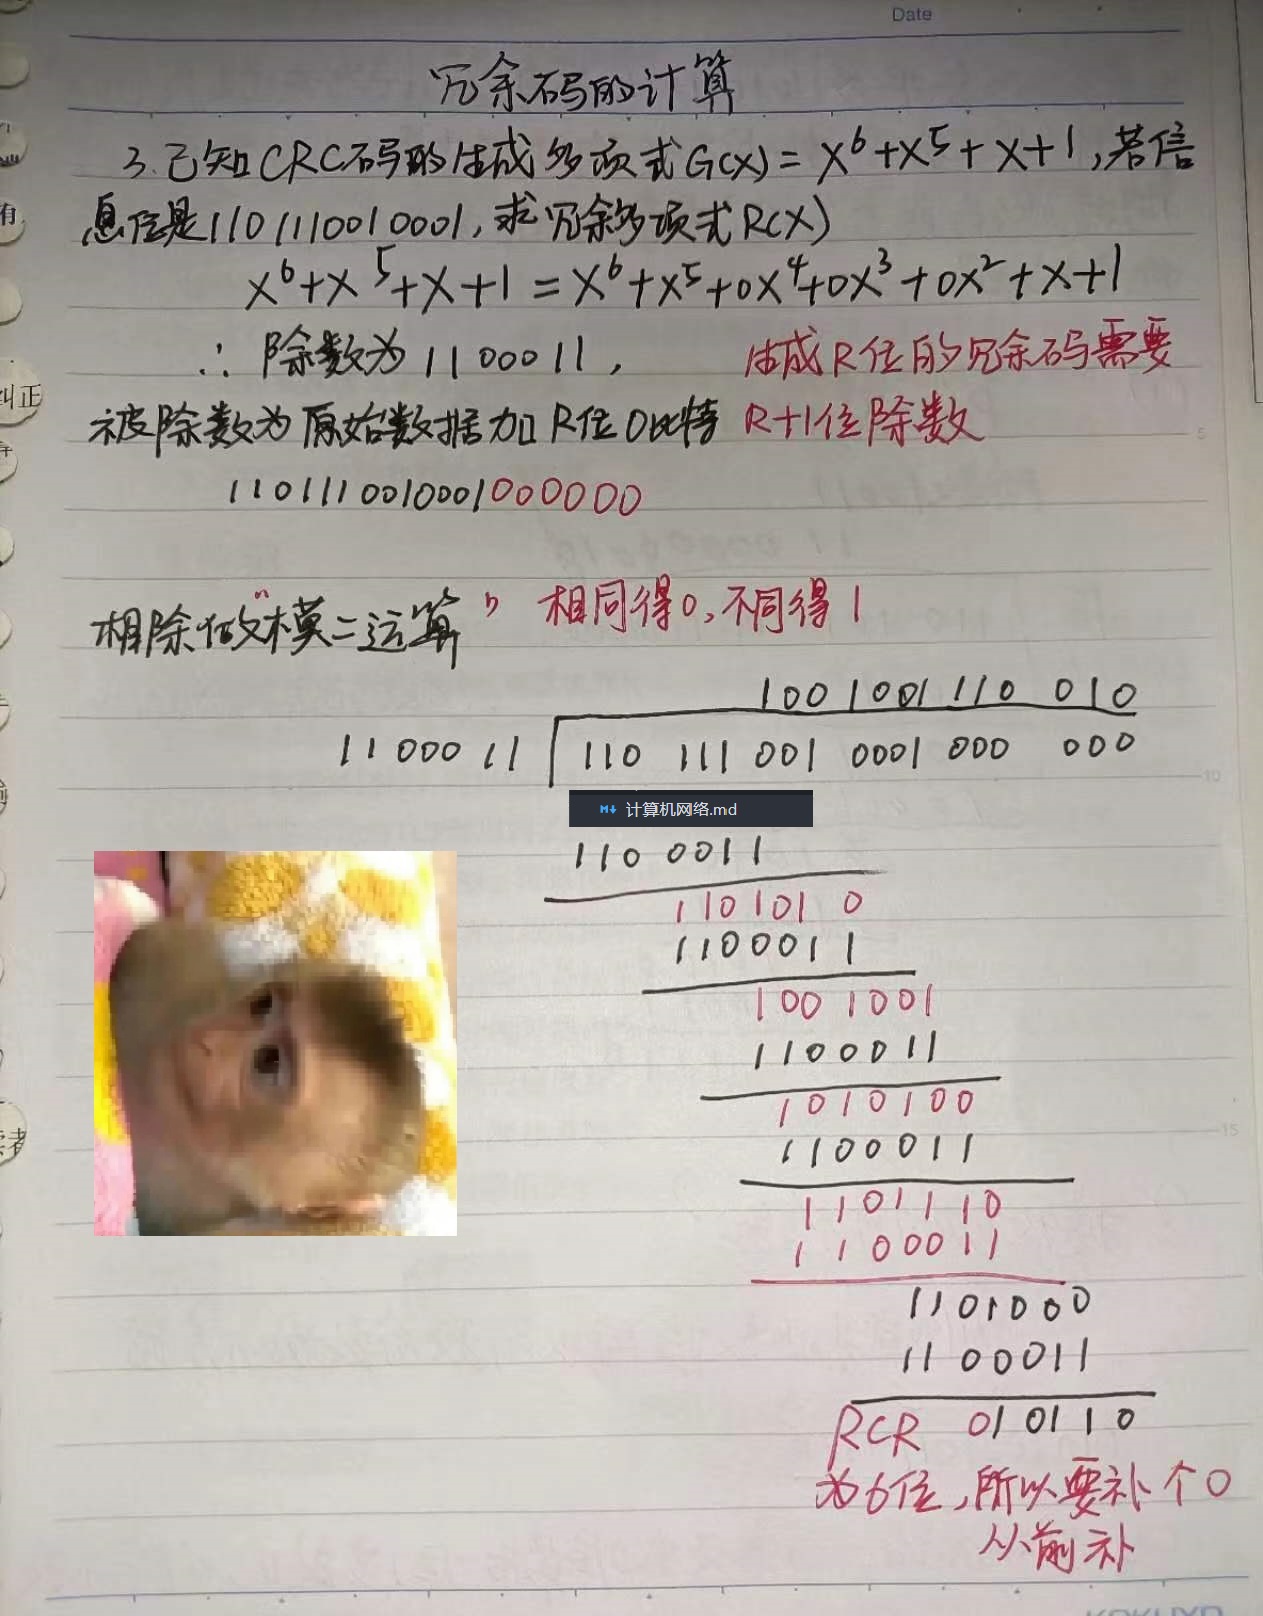 Date
冗余码的计算
3.已知CRC码的生成多项式G(X)=X⁶+X⁵+X+1,若信
息位是1101110010001,求冗余多项式R(X)
X⁶+X⁵+X+1=X⁶+X⁵+0X⁴+0X³+0X²+X+1
∴除数为1100011, 生成R位的冗余码需要
被除数为原始数据加R位0比特 R+1位除数
5
1101110010001000000
相除做"模二运算" 相同得0,不同得1
1001001110 010
1100011 110 111 001 0001 000 000
10
计算机网络.md
1100011
1101010
1100011
1001001
1100011
1010100
1100011
15
1101110
1100011
1101000
1100011
RCR 010110
为6位,所以要补个0
从前补
有
纠正